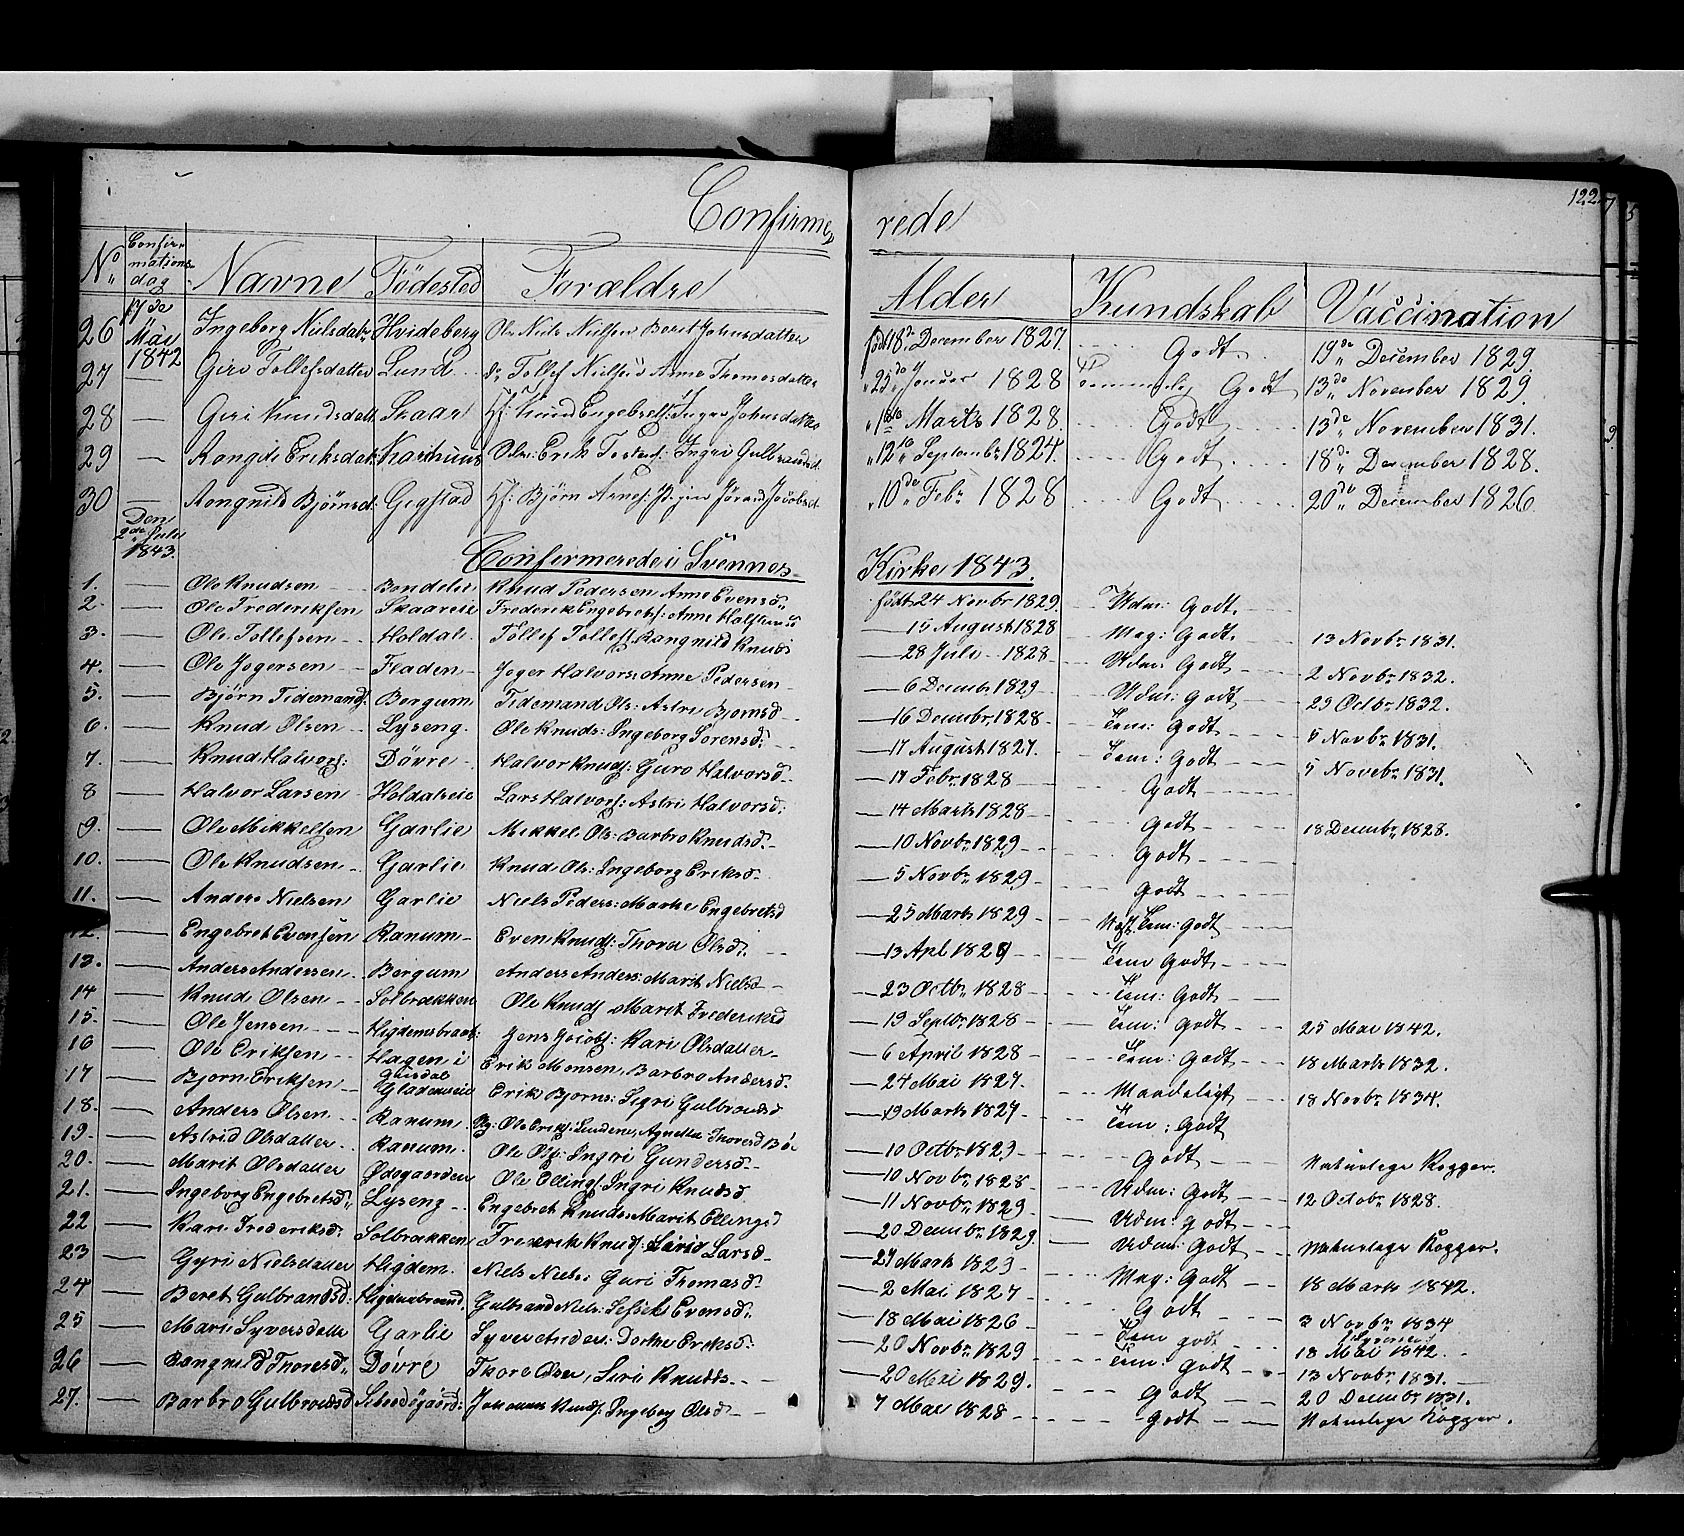 Confirme
rede
122
No Confirmations dag Navne Födested Forældre Alder Kundskab Vaccination
26 Mai 1842 Ingeborg Nielsdatr Hvideberg Niels Nielsen Berit Johnsdatter født 18 December 1827 Godt 19de December 1829.
27 — Giri Tollefsdatter Lund Tollef Nielsen Anne Thomasdatter 23do Januar 1828 Temmelig Godt 13de November 1829.
28 — Giri Knudsdatt Skaar Hf: Knud Engebrets: Inger Johnsdatter Marts 1828. Godt 13de November 1831.
29 — Rangdi Eriksdatr Erik Ingri Gulbrandsd 12te Septembr 1827. Godt 18de December 1828.
30 — Rangnild Bjørnsd: Gigstad Hf: Bjørn Arnes: Jacobsd 10de Febr 1828 Godt 20de December 1826
Den 2den Juli 1843.
Confermerede i Svennes Kirke 1843.
1. — Ole Knudsen Bondelie Knud Pedersen Anne Evensd født 24 Novbr 1829 Udm: Godt
2. — Ole Frederiksen Skaareie Frederik Engebrets: Anne — 15 August 1828 Mag: Godt 13 Novbr 1831.
3. — Ole Tollefsen Holdal Tollef Tollefs: Rangnild Knuds — 28 Juli 1828 Udm: Godt 2 Novbr 1832.
4. — Ole Jogersen Fladen Joger Halvors: Anne Pedersen — 6 Decembr 1829 Udm: Godt 29 Octbr 1832.
5. — Bjørn Tidemands: Bergum Tidemand Ols: Astri Bjornsd — 16 Decembr 1828 Tem: Godt 5 Novbr 1831.
6. — Knud Olsen Lyseng Ole Knuds: Ingeborg Sorensd: — 17 August 1827. Tem: Godt 5 Novebr 1831.
7. — Knud Halvors: Dövre Halvor Knuds: Guro Halvorsd — 17 Febr 1828 Godt
8 — Halvor Larsen Holdalseie Lars Halvors: Astri Halvorsd: — 14 Marts 1828 Godt 18 Decembr 1828.
9. — Ole Mikkelsen Garlie Mikkel Ols: Barbro Knudsd. — 10 Novbr 1829 Godt
10. — Ole Knudsen Garlie Knud Ols: Ingeborg Eriksd — 5 Novbr 1829 Godt
11. — Anders Nielsen Garlie Niels Peders: Marthe Engebretsd — 25 Marts 1829 Tem: Godt
12. — Engebret Evensen Ranum Even Knuds: Thora Olsd: — 13 Apl 1829 Tem Godt
13. — Anders Andersen Bergum Anders Anders: Marit Nielsd — 23 Octbr 1828 Tem: Godt
14 — Knud Olsen Solbrækken Ole Knuds Marit Frederiksd — 19 Septbr 1828 Tem: Godt 25 Mai 1842.
15. — Ole Jensen Jens Jacobs: Kari Olsdatter — 6 April 1828 Tem: Godt 18 Marts 1832.
16 — Ole Eriksen Hagen i Gusdal Erik Monsen, Barbro Andersd. — 24 Mai 1827. Maadeligt 18 Novbr 1834.
17 — Bjorn Eriksen Gladenseie Erik Bjorns: Sigri Gulbrandsd — 19 Marts 1827 Tem: Godt
18. — Anders Olsen Ranum Ole Eriks: Agnethe Thoresd — 10 Octbr 1829 Godt Naturlege Kopper.
19. — Astrid Olsdatter Ranum. Ole Ols: Ingri Gundersd — 10 Novbr 1828 Udm: Godt 12 Octobr 1828.
20. — Marit Olsdatter Ødegaarden Ole Ellings: Ingri Knudsd. — 11 Novbr 1829 Udm: Godt
21. — Ingeborg Engebretsd: Lyseng Engebret Knuds: Marit Ellingsd — 20 Decmbr 1829 Udm: Godt Naturlege Kopper.
22 — Kari Frederiksd: Solbrækken Frederik Knuds: Sirid Larsd — 27 Marts 1829 Mag: Godt 18 Marts 1842.
23 — Gyri Nielsdatter Higdem. Niels Niels: Guri Thomasd. — 2 Mai 1827 Godt
24 — Beret Gulbrandsd: Gulbrand Niels: Evensd: — 18 Mai 1826 Tem godt 3 Novbr 1834
25 — Mari Syversdatter Garlie Syver Anders: Dorthe Eriksd: — 20 Novbr 1829 Tem: Godt 18 Mai 1842.
26 — Rangnild Thoresd: Dövre Thore Olsen, Siri Knudts. — 20 Mai 1829. Godt 13 Novbr 1831.
20 Decmbr 1831.
27. — Barbro Gulbrandsd Johannes Knuds: Ingeborg Olsd — 7 Mai 1828 Godt Naturlege Kopper.